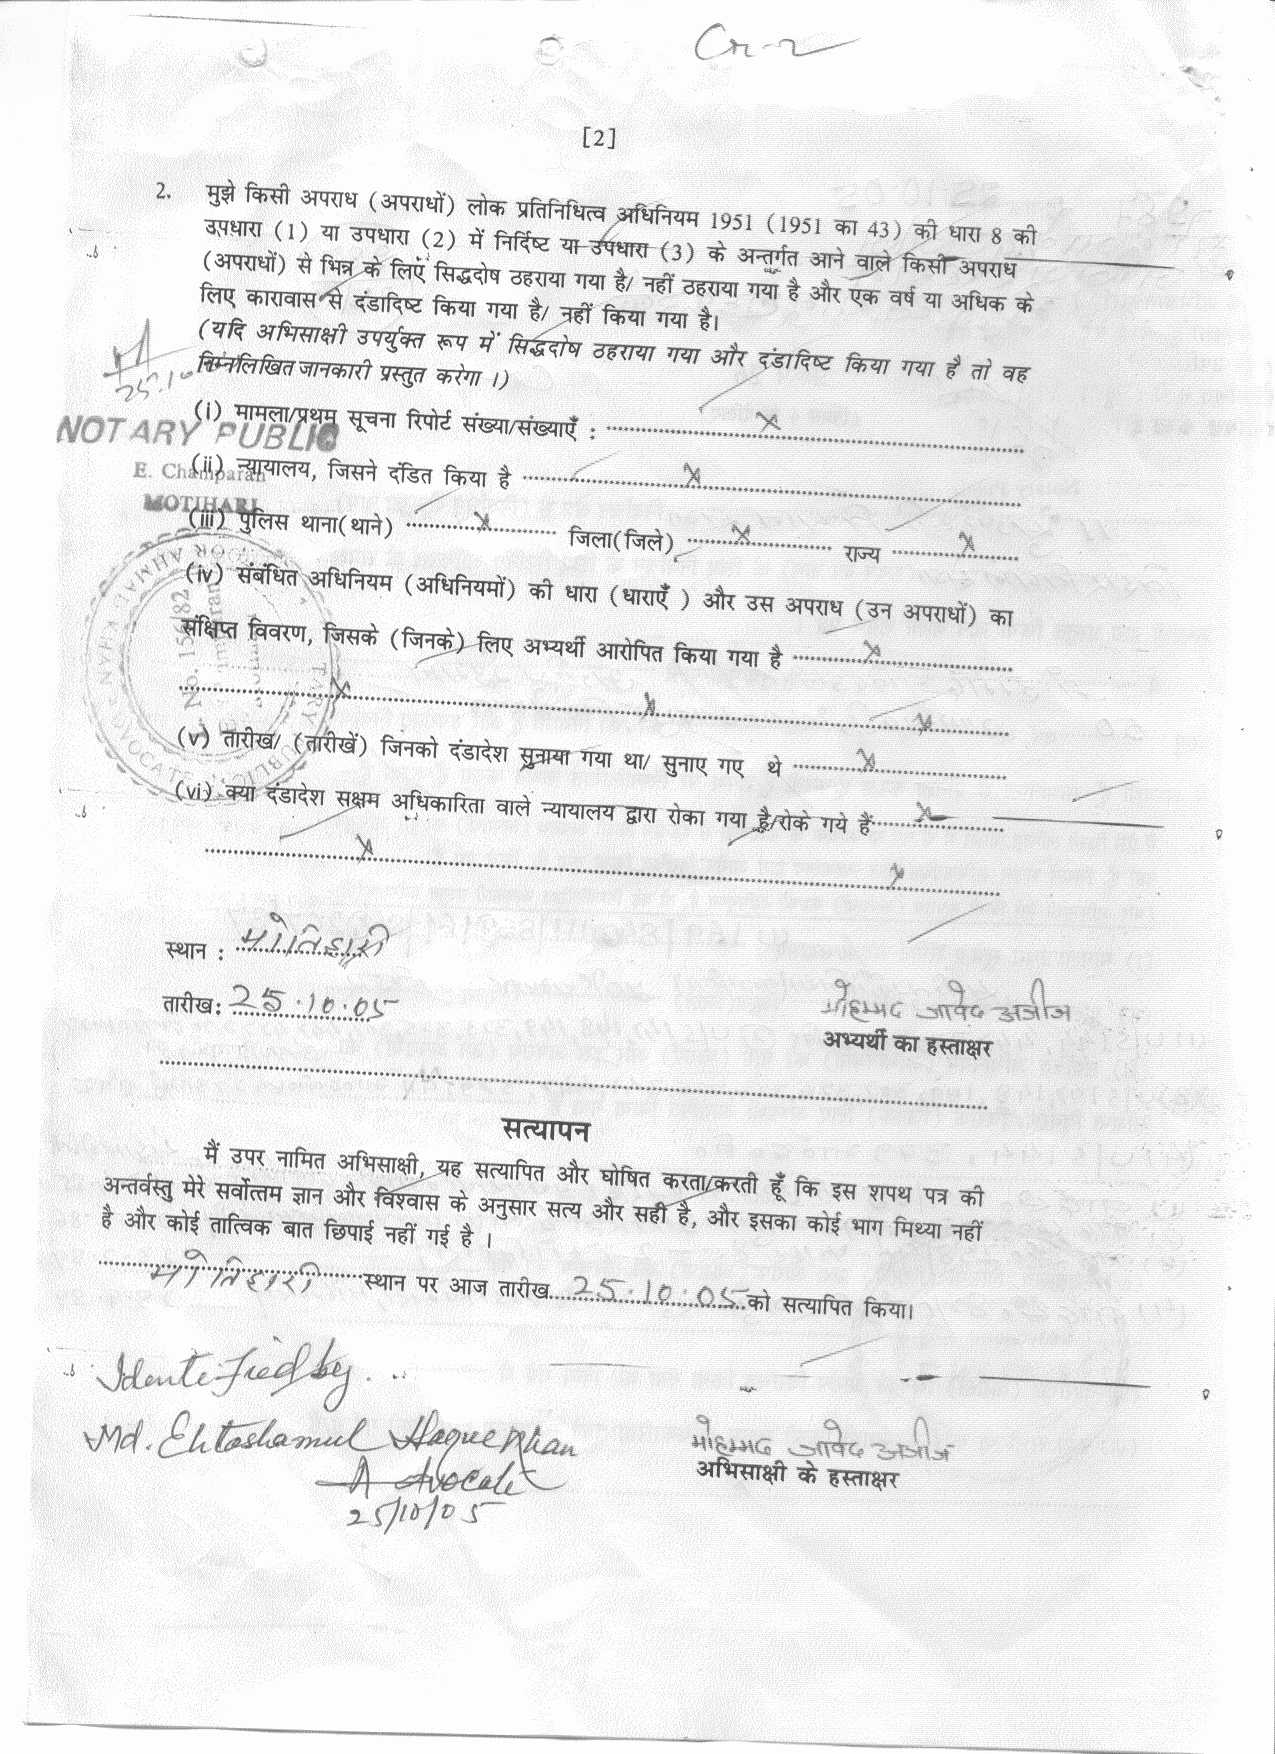 [2]
2. मुझे किसी अपराध (अपराधों) लोक प्रतिनिधित्व अधिनियम 1951 (1951 का 43) की धारा 8 की
उपधारा (1) या उपधारा (2) में निर्दिष्ट या उपधारा (3) के अन्तर्गत आने वाले किसी अपराध
(अपराधों) से भिन्न के लिएं सिद्धदोष ठहराया गया है/ नहीं ठहराया गया है और एक वर्ष या अधिक के
लिए कारावास से दंडादिष्ट किया गया है/ नहीं किया गया है।
(यदि अभिसाक्षी उपर्युक्त रूप में सिद्धदोष ठहराया गया और दंडादिष्ट किया गया है तो वह
निम्नलिखित जानकारी प्रस्तुत करेगा ।)
25.10
(i) मामला/प्रथम सूचना रिपोर्ट संख्या/संख्याएँ : x
NOTARY PUBLIC
(ii) न्यायालय, जिसने दंडित किया है x
E. Champaran
MOTIHARI
(iii) पुलिस थाना(थाने) x जिला(जिले) x राज्य x
(iv) संबंधित अधिनियम (अधिनियमों) की धारा (धाराएँ ) और उस अपराध (उन अपराधों) का
संक्षिप्त विवरण, जिसके (जिनके) लिए अभ्यर्थी आरोपित किया गया है x
x x x
(v) तारीख/ (तारीखें) जिनको दंडादेश सुनाया गया था/ सुनाए गए थे x
(vi) क्या दंडादेश सक्षम अधिकारिता वाले न्यायालय द्वारा रोका गया है/रोके गये हैं x
x x
स्थान : मोतिहारी
तारीख: 25.10.05
मोहम्मद जावेद अजीज
अभ्यर्थी का हस्ताक्षर
सत्यापन
मैं उपर नामित अभिसाक्षी, यह सत्यापित और घोषित करता/करती हूँ कि इस शपथ पत्र की
अन्तर्वस्तु मेरे सर्वोत्तम ज्ञान और विश्वास के अनुसार सत्य और सही है, और इसका कोई भाग मिथ्या नहीं
है और कोई तात्विक बात छिपाई नहीं गई है ।
मोतिहारी स्थान पर आज तारीख 25.10.05 को सत्यापित किया।
Identified by
Md. Ehtashamul Haque Khan
Advocate
25/10/05
मोहम्मद जावेद अजीज
अभिसाक्षी के हस्ताक्षर